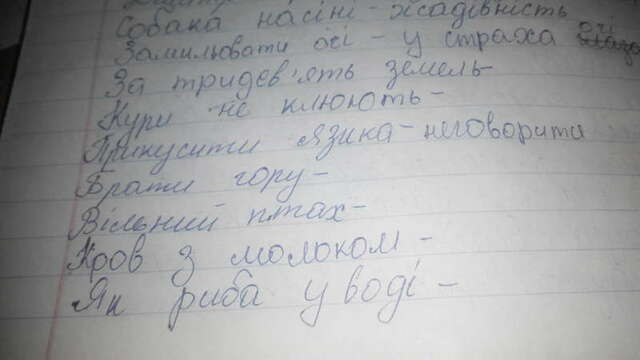 Собака на сіні - жадівність
Замилювати очі - у страха очі
За тридев'ять земель
Кури не клюють -
Прикусити язика - неговорити
Брати гору -
Вільний птах -
Кров з молоком -
Як риба у воді -